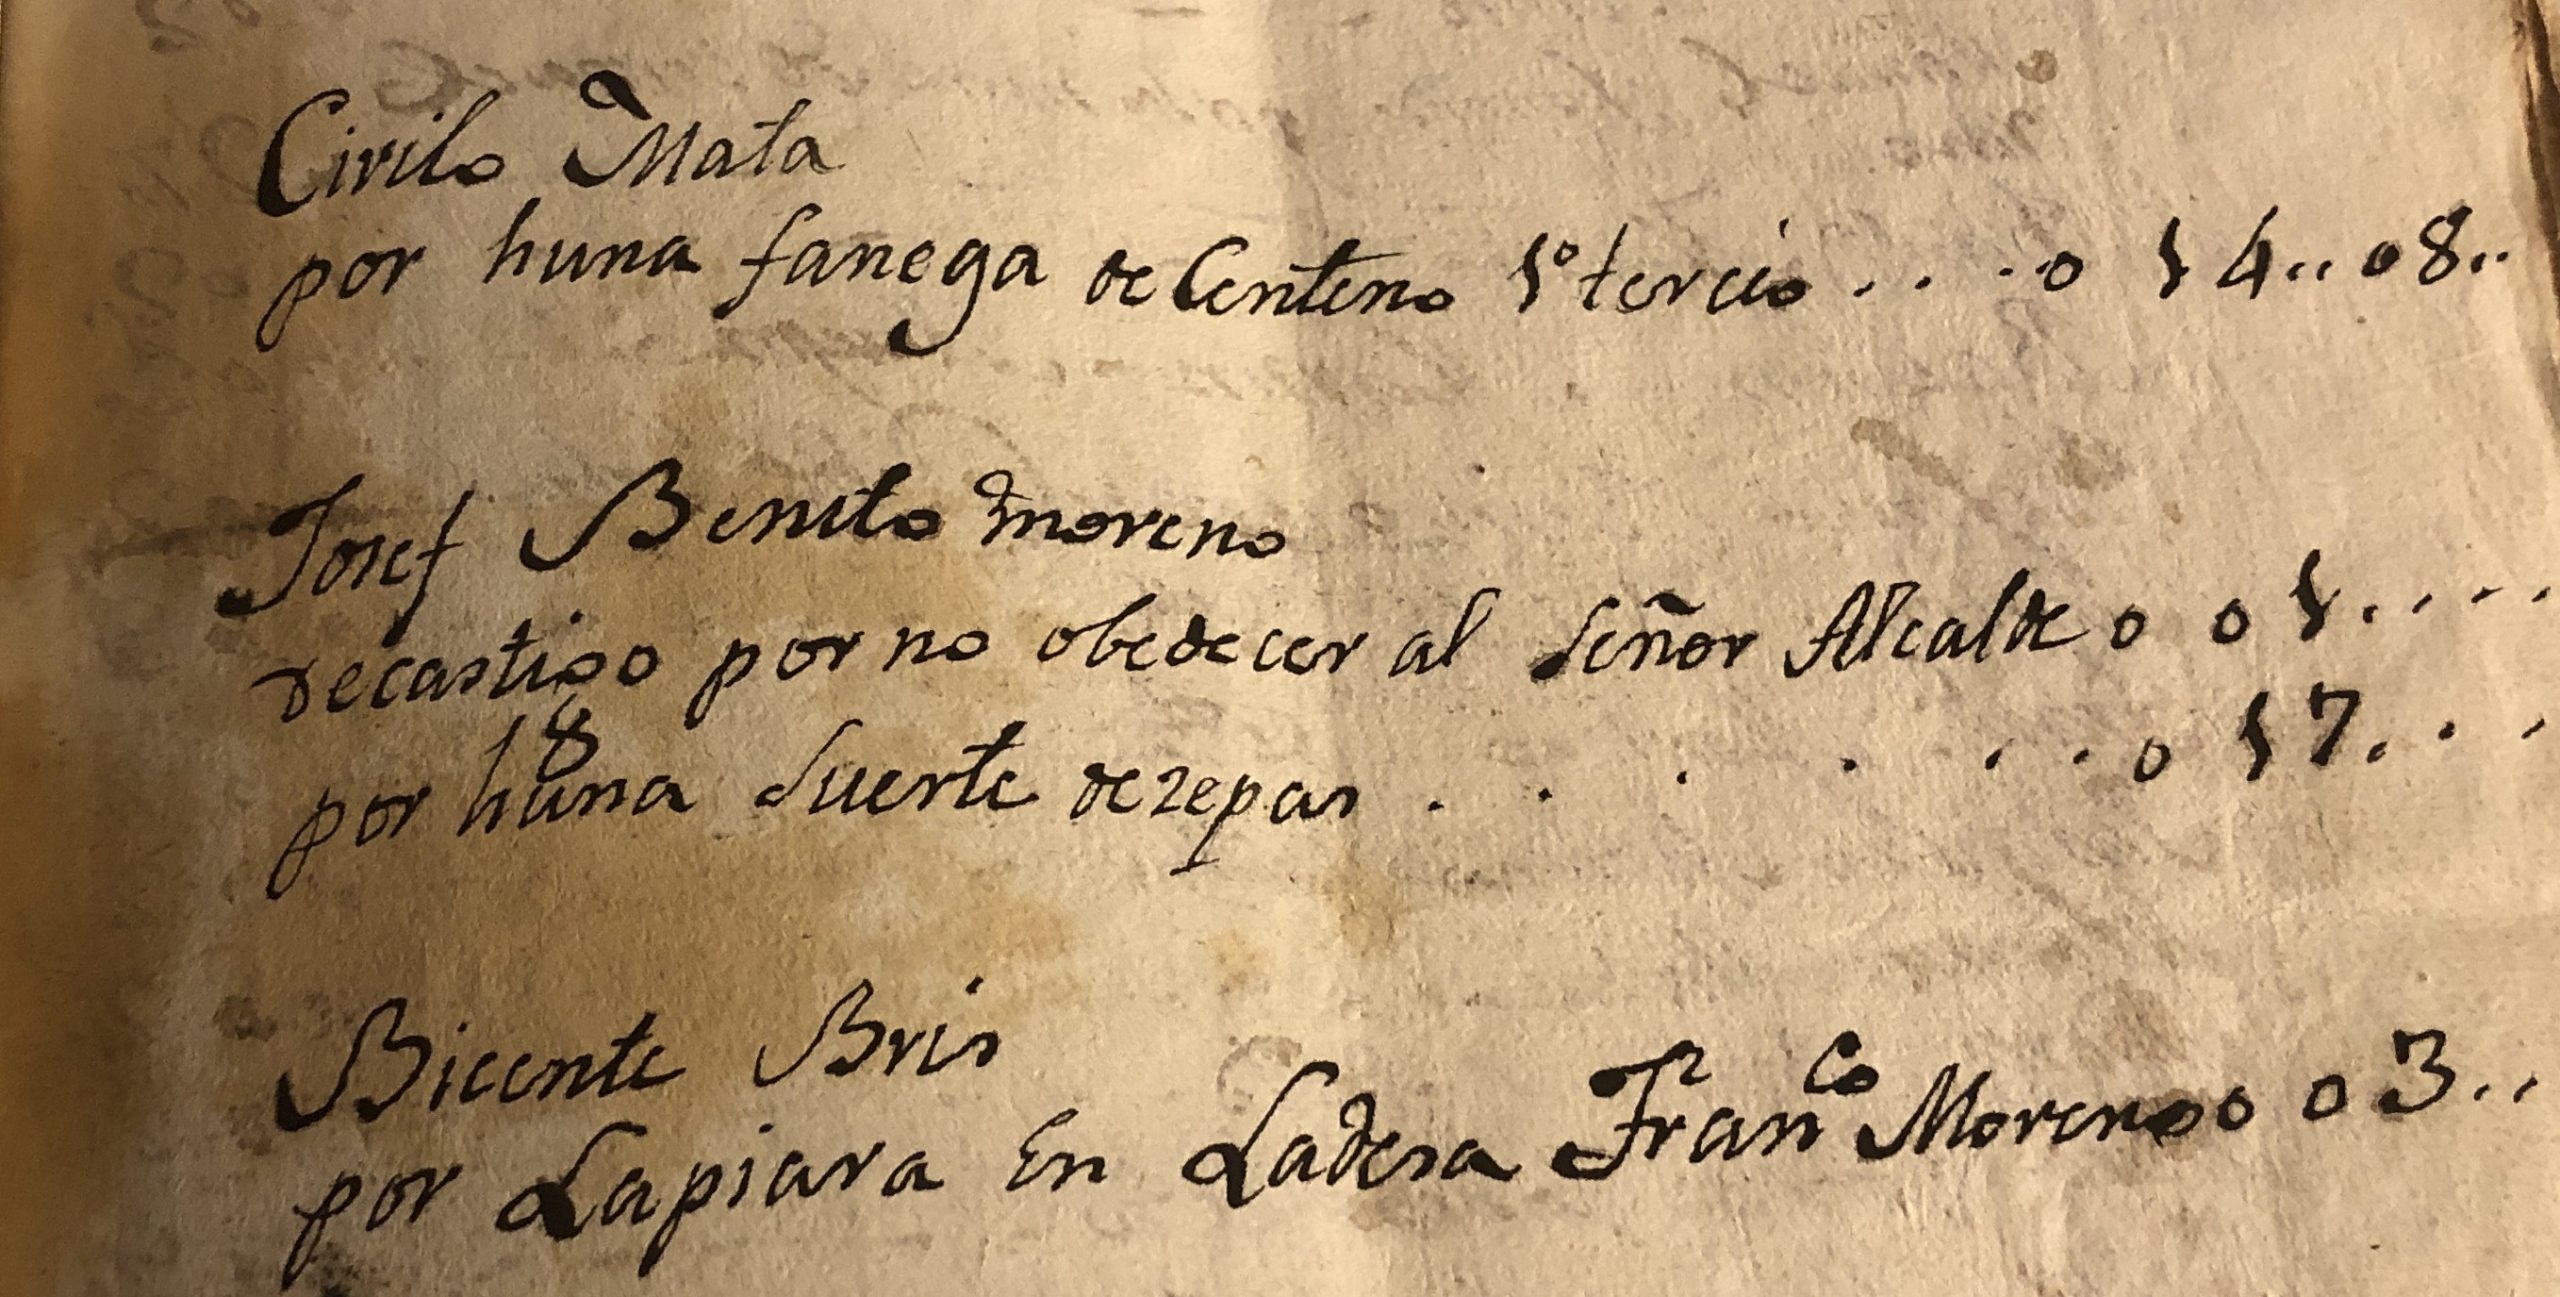 Cirilo Mata
por huna fanega de Centeno 1º tercio . . . . 0 1 4 .. 08 ..
Josef Benito moreno
de castigo por no obedecer al Señor Alcalde 0 0 1 . . . .
por huna suerte de zepas . . . . . . 0 1 7 . . .
Bicente Bris
por La piara En Ladera Franco Moreno 0 0 3 ..